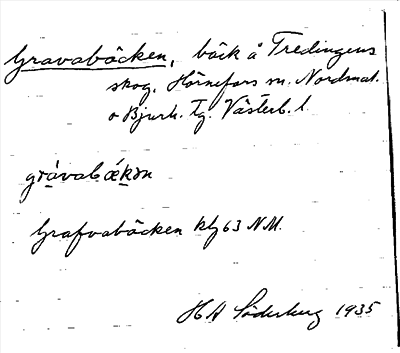 Gravabäcken, bäck å Tredingens
skog, Hörnefors sn. Nordmal.
o Bjurh. Tg. Västerb. l.
grávabǽkən
Grafvabäcken kbg 63 NM.
H A Söderberg 1935